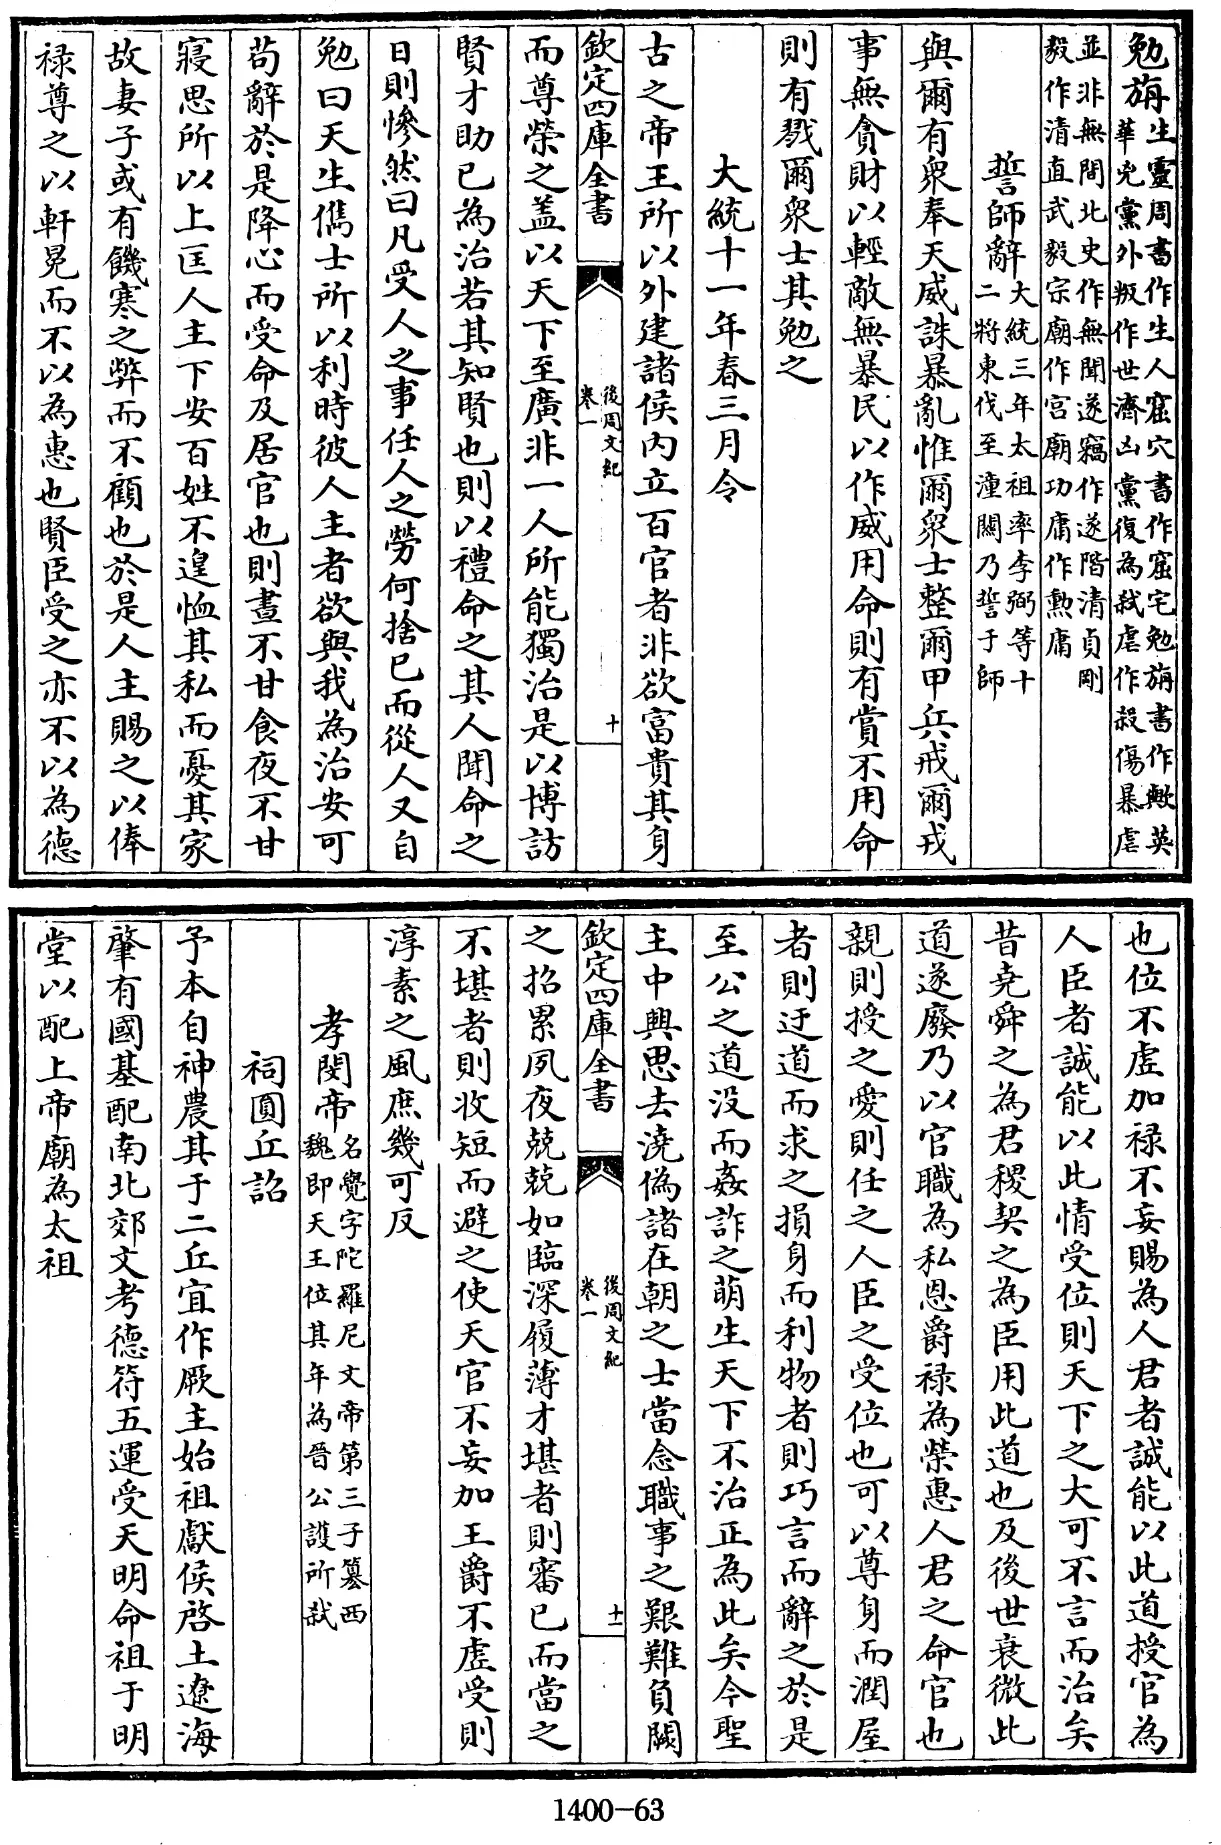 勉旃生靈周書作生人窟穴書作窟宅勉旃書作歟英
華兇黨外叛作世濟凶黨復為弑虐作殺傷暴虐
並非無間北史作無聞遂竊作遂階清貞剛
毅作清直武毅宗廟作宮廟功庸作勲庸
誓師辭大統三年太祖率李弼等十
二將東伐至潼關乃誓于師
與爾有衆奉天威誅暴亂惟爾衆士整爾甲兵戒爾戎
事無貪財以輕敵無暴民以作威用命則有賞不用命
則有戮爾衆士其勉之
大統十一年春三月令
古之帝王所以外建諸侯内立百官者非欲富貴其身
欽定四庫全書
後周文紀
卷一
十
而尊榮之盖以天下至廣非一人所能獨治是以博訪
賢才助已為治若其知賢也則以禮命之其人聞命之
日則慘然曰凡受人之事任人之勞何捨已而從人又自
勉曰天生儁士所以利時彼人主者欲與我為治安可
苟辭於是降心而受命及居官也則晝不甘食夜不甘
寢思所以上匡人主下安百姓不遑恤其私而憂其家
故妻子或有饑寒之弊而不顧也於是人主賜之以俸
禄尊之以軒冕而不以為惠也賢臣受之亦不以為德
也位不虛加禄不妄賜為人君者誠能以此道授官為
人臣者誠能以此情受位則天下之大可不言而治矣
昔堯舜之為君稷契之為臣用此道也及後世衰微此
道遂廢乃以官職為私恩爵禄為榮惠人君之命官也
親則授之愛則任之人臣之受位也可以尊身而潤屋
者則迂道而求之損身而利物者則巧言而辭之於是
至公之道没而姦詐之萌生天下不治正為此矣今聖
主中興思去澆偽諸在朝之士當念職事之艱難負闕
欽定四庫全書
後周文紀
卷一
十一
之招累夙夜兢兢如臨深履薄才堪者則審已而當之
不堪者則收短而避之使天官不妄加王爵不虛受則
淳素之風庶幾可反
孝閔帝名覺字陀羅尼文帝第三子簒西
魏即天王位其年為晉公護所弑
祠圓丘詔
予本自神農其于二丘宜作厥主始祖獻侯啓土遼海
肇有國基配南北郊文考德符五運受天明命祖于明
堂以配上帝廟為太祖
1400-63